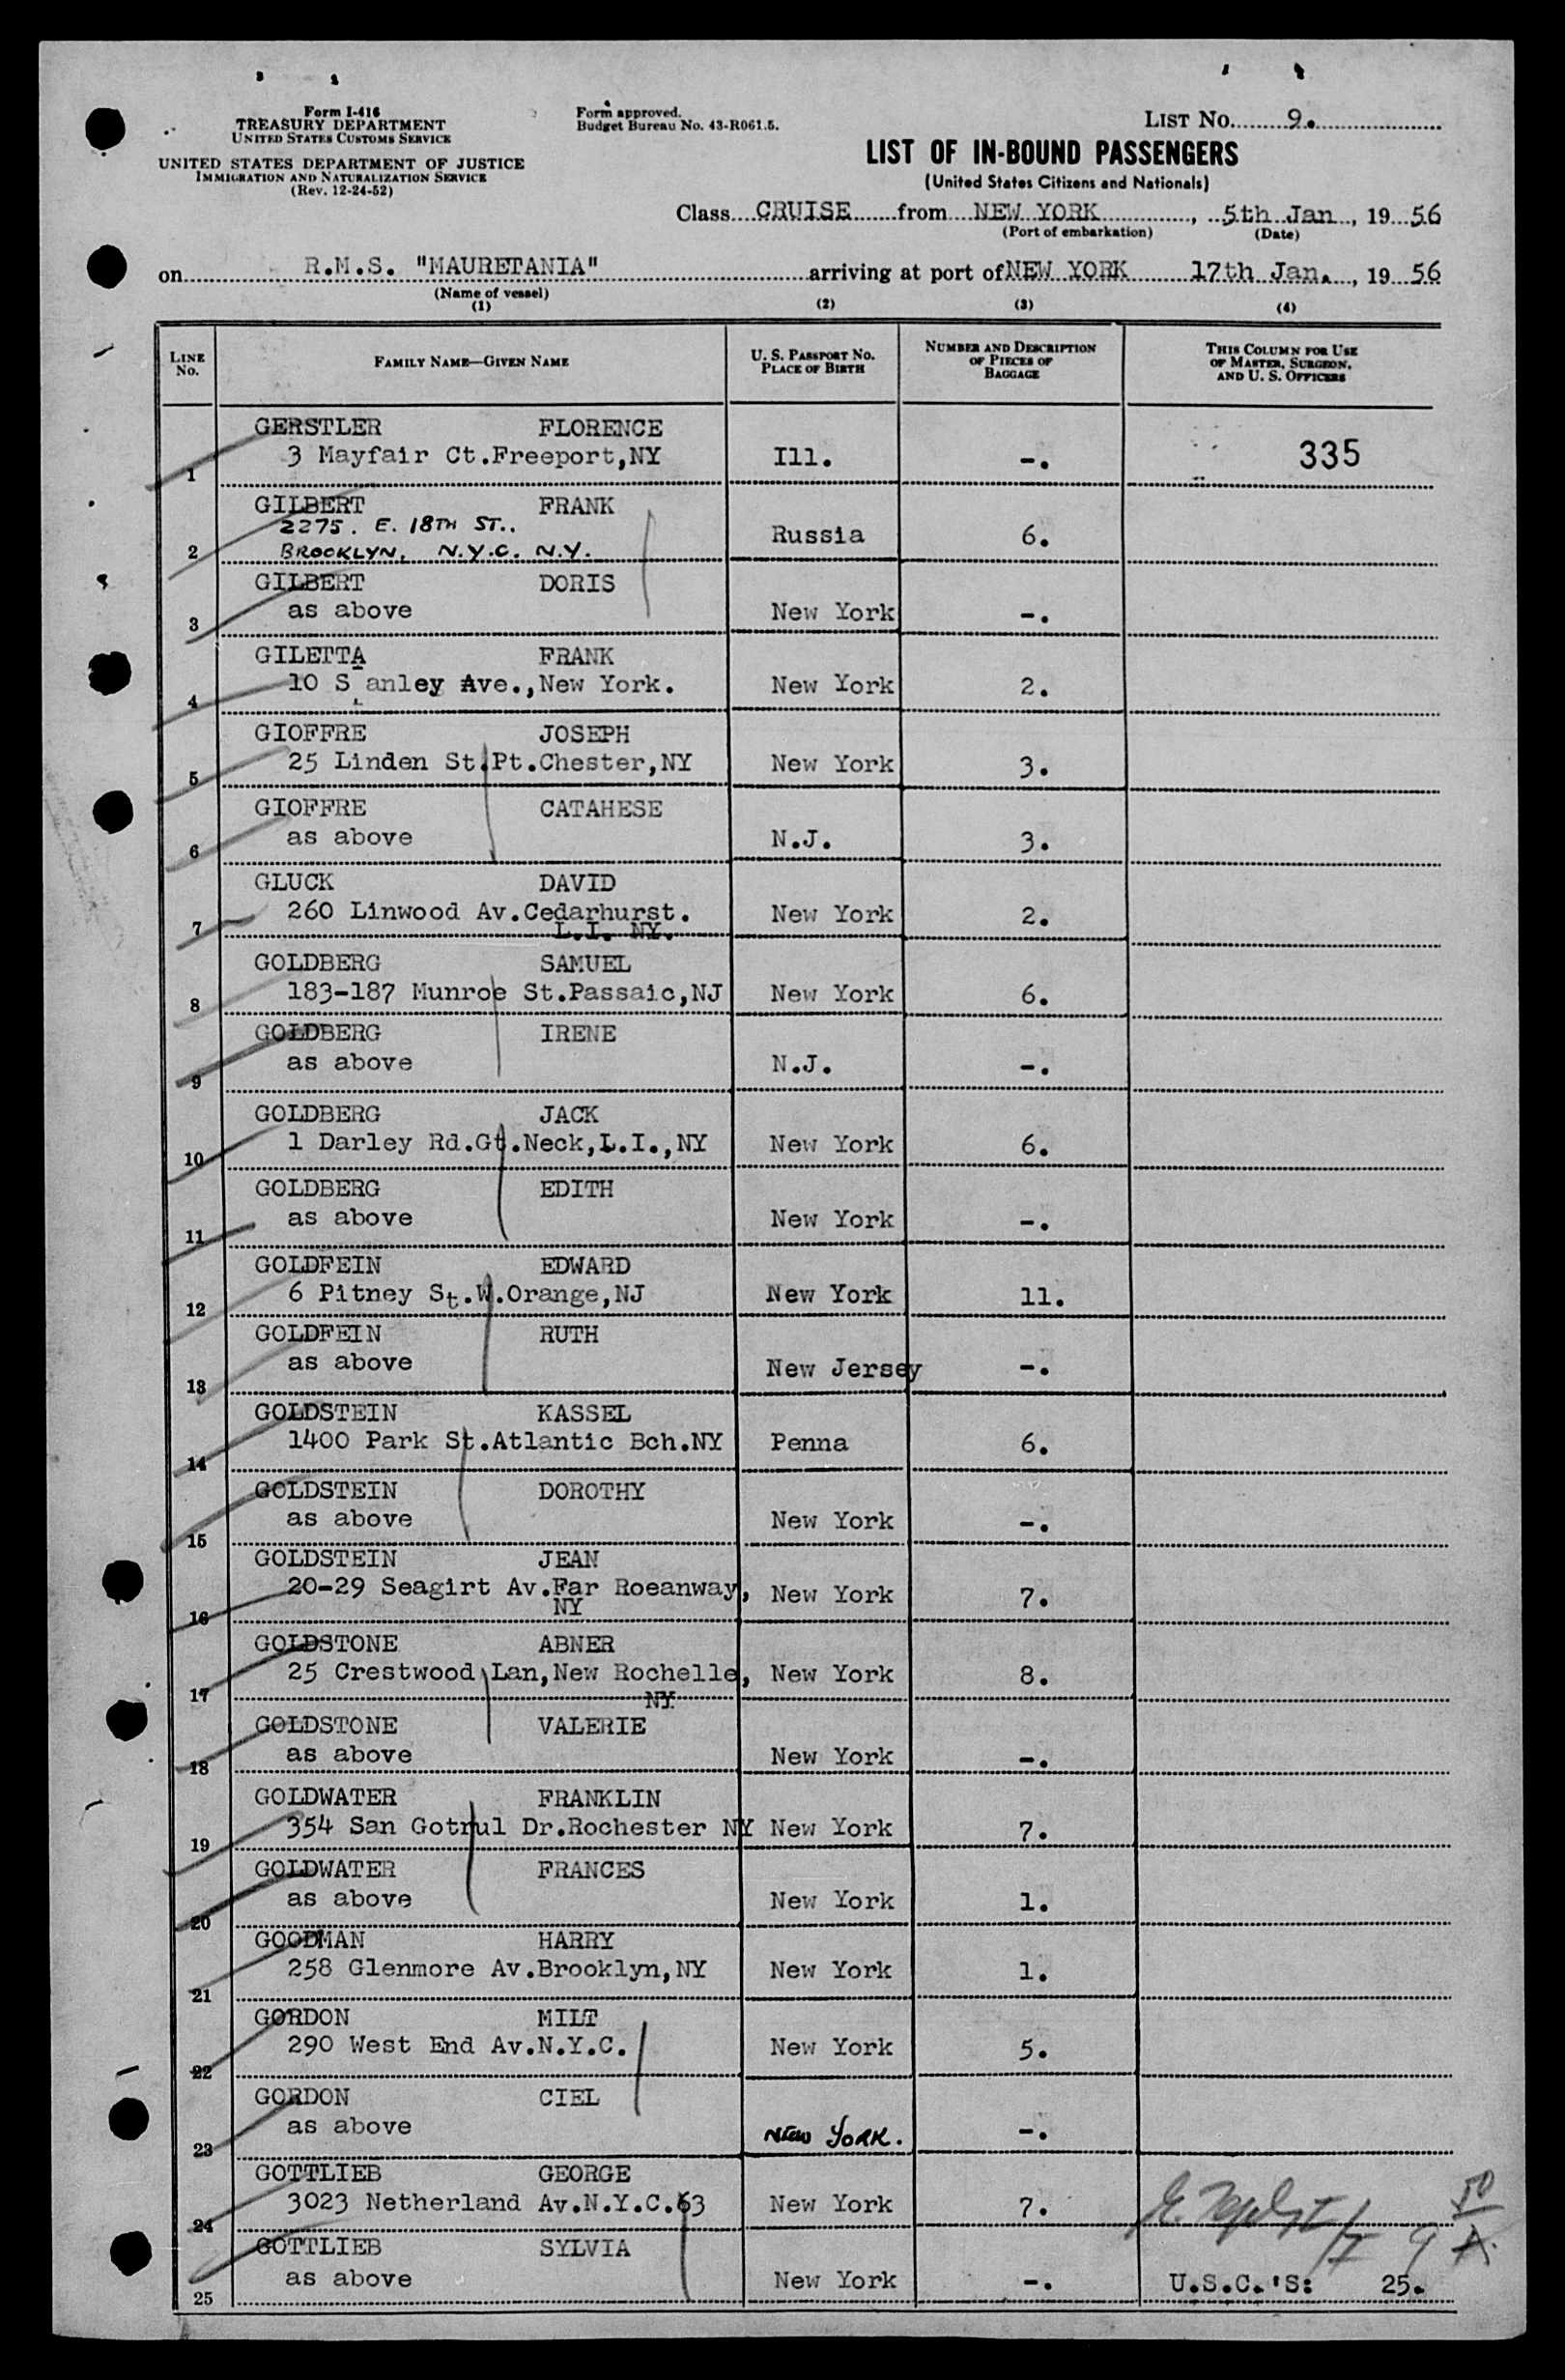 Form I-416
TREASURY DEPARTMENT
UNITED STATES CUSTOMS SERVICE
UNITED STATES DEPARTMENT OF JUSTICE
IMMIGRATION AND NATURALIZATION SERVICE
(Rev. 12-24-52)
Form approved.
Budget Bureau No. 43-R061.5.
LIST NO. 9.
LIST OF IN-BOUND PASSENGERS
(United States Citizens and Nationals)
Class CRUISE from NEW YORK, 5th Jan, 19 56
(Port of embarkation) (Date)
on R.M.S. "MAURETANIA" arriving at port of NEW YORK 17th Jan., 19 56
(Name of vessel)
(1) (2) (3) (4)
LINE No. FAMILY NAME—GIVEN NAME U. S. PASSPORT NO. PLACE OF BIRTH NUMBER AND DESCRIPTION OF PIECES OF BAGGAGE THIS COLUMN FOR USE OF MASTER, SURGEON, AND U. S. OFFICERS
GERSTLER FLORENCE
1 3 Mayfair Ct.Freeport,NY Ill. -. 335
GILBERT FRANK
2275. E. 18TH ST..
2 BROOKLYN, N.Y.C. N.Y. Russia 6.
GILBERT DORIS
3 as above New York -.
GILETTA FRANK
4 10 Stanley Ave.,New York. New York 2.
GIOFFRE JOSEPH
5 25 Linden St.Pt.Chester,NY New York 3.
GIOFFRE CATAHESE
6 as above N.J. 3.
GLUCK DAVID
7 260 Linwood Av.Cedarhurst. New York 2.
L.I. NY.
GOLDBERG SAMUEL
8 183-187 Munroe St.Passaic,NJ New York 6.
GOLDBERG IRENE
9 as above N.J. -.
GOLDBERG JACK
10 1 Darley Rd.Gt.Neck,L.I.,NY New York 6.
GOLDBERG EDITH
11 as above New York -.
GOLDFEIN EDWARD
12 6 Pitney St.W.Orange,NJ New York 11.
GOLDFEIN RUTH
13 as above New Jersey -.
GOLDSTEIN KASSEL
14 1400 Park St.Atlantic Bch.NY Penna 6.
GOLDSTEIN DOROTHY
15 as above New York -.
GOLDSTEIN JEAN
16 20-29 Seagirt Av.Far Roeanway, New York 7.
NY
GOLDSTONE ABNER
17 25 Crestwood Lan,New Rochelle, New York 8.
NY.
GOLDSTONE VALERIE
18 as above New York -.
GOLDWATER FRANKLIN
19 354 San Gotrul Dr.Rochester NY New York 7.
GOLDWATER FRANCES
20 as above New York 1.
GOODMAN HARRY
21 258 Glenmore Av.Brooklyn,NY New York 1.
GORDON MILT
22 290 West End Av.N.Y.C. New York 5.
GORDON CIEL
23 as above NEW YORK. -.
GOTTLIEB GEORGE
24 3023 Netherland Av.N.Y.C.63 New York 7.
GOTTLIEB SYLVIA
25 as above New York -. U.S.C.'S: 25.